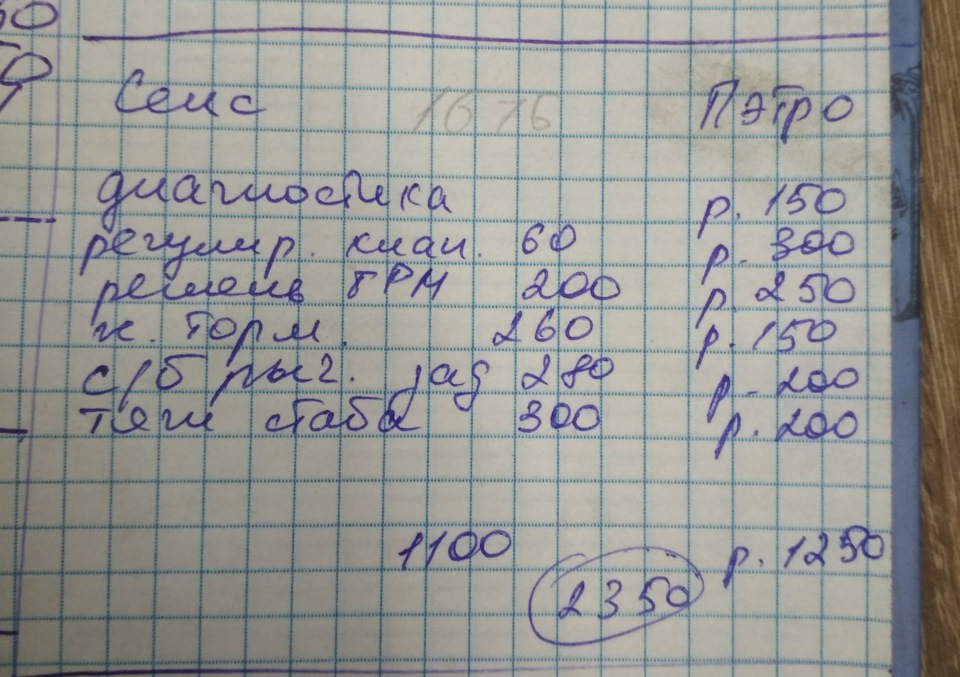 50
Сенс 1676 Пэтро
диагностика р. 150
регулир. клап. 60 р. 300
ремень ГРМ 200 р. 250
к. торм. 260 р. 150
с/б рыч. зад 280 р. 200
тяги стаба 300 р. 200
1100 р. 1250
2350